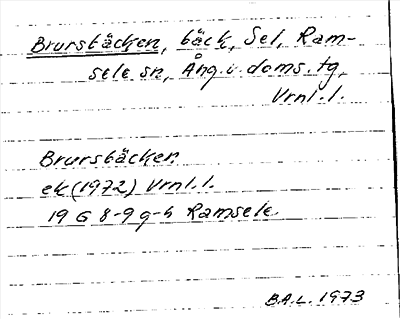 Brursbäcken, bäck, Sel, Ram-
sele sn, Ång.v.doms.tg,
Vrnl.l.
Brursbäcken
ek (1972) Vrnl.l.
19 G 8-9 g-h Ramsele.
B.A.L. 1973